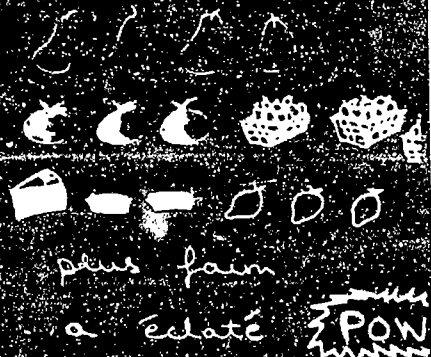 plus faim
a éclaté POW